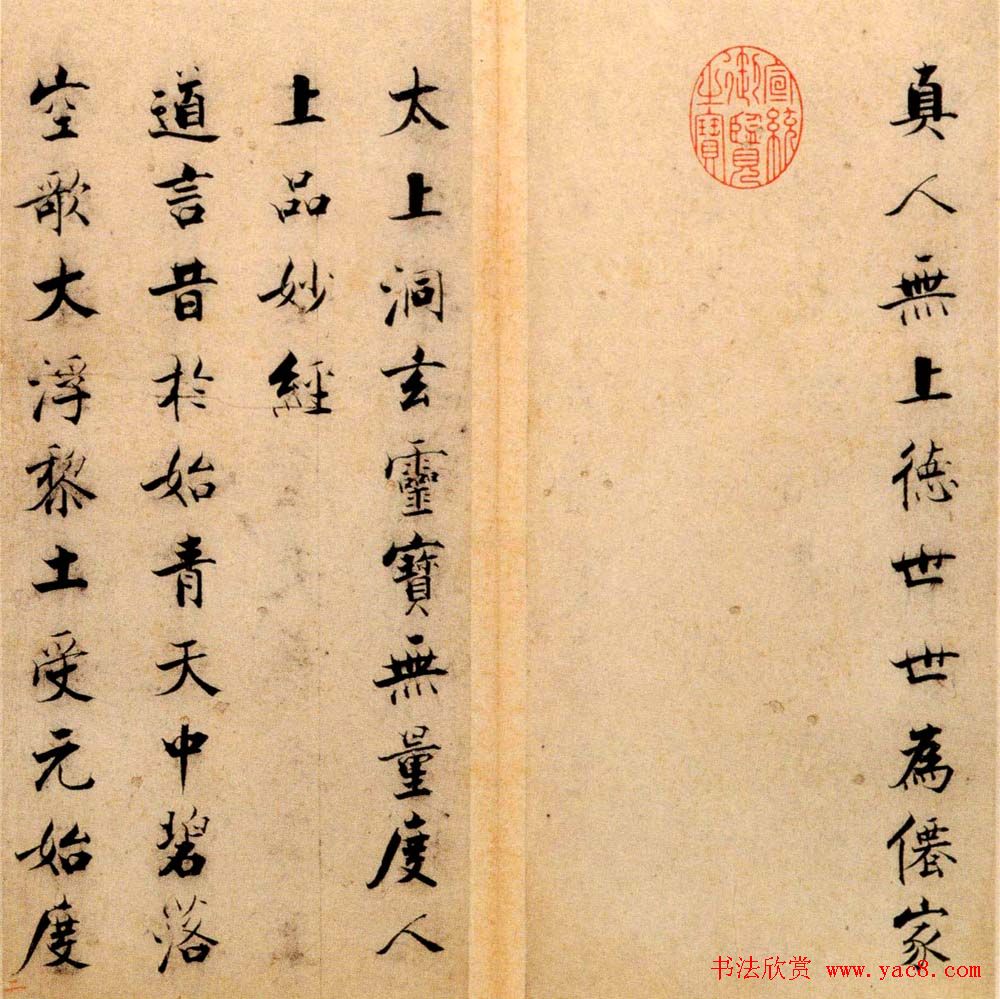 真人無上德世世為僊家
宣統
御覽
之寶
太上洞玄靈寶無量度人
上品妙經
道言昔於始青天中碧落
空歌大浮黎土受元始度
书法欣赏 www.yac8.com